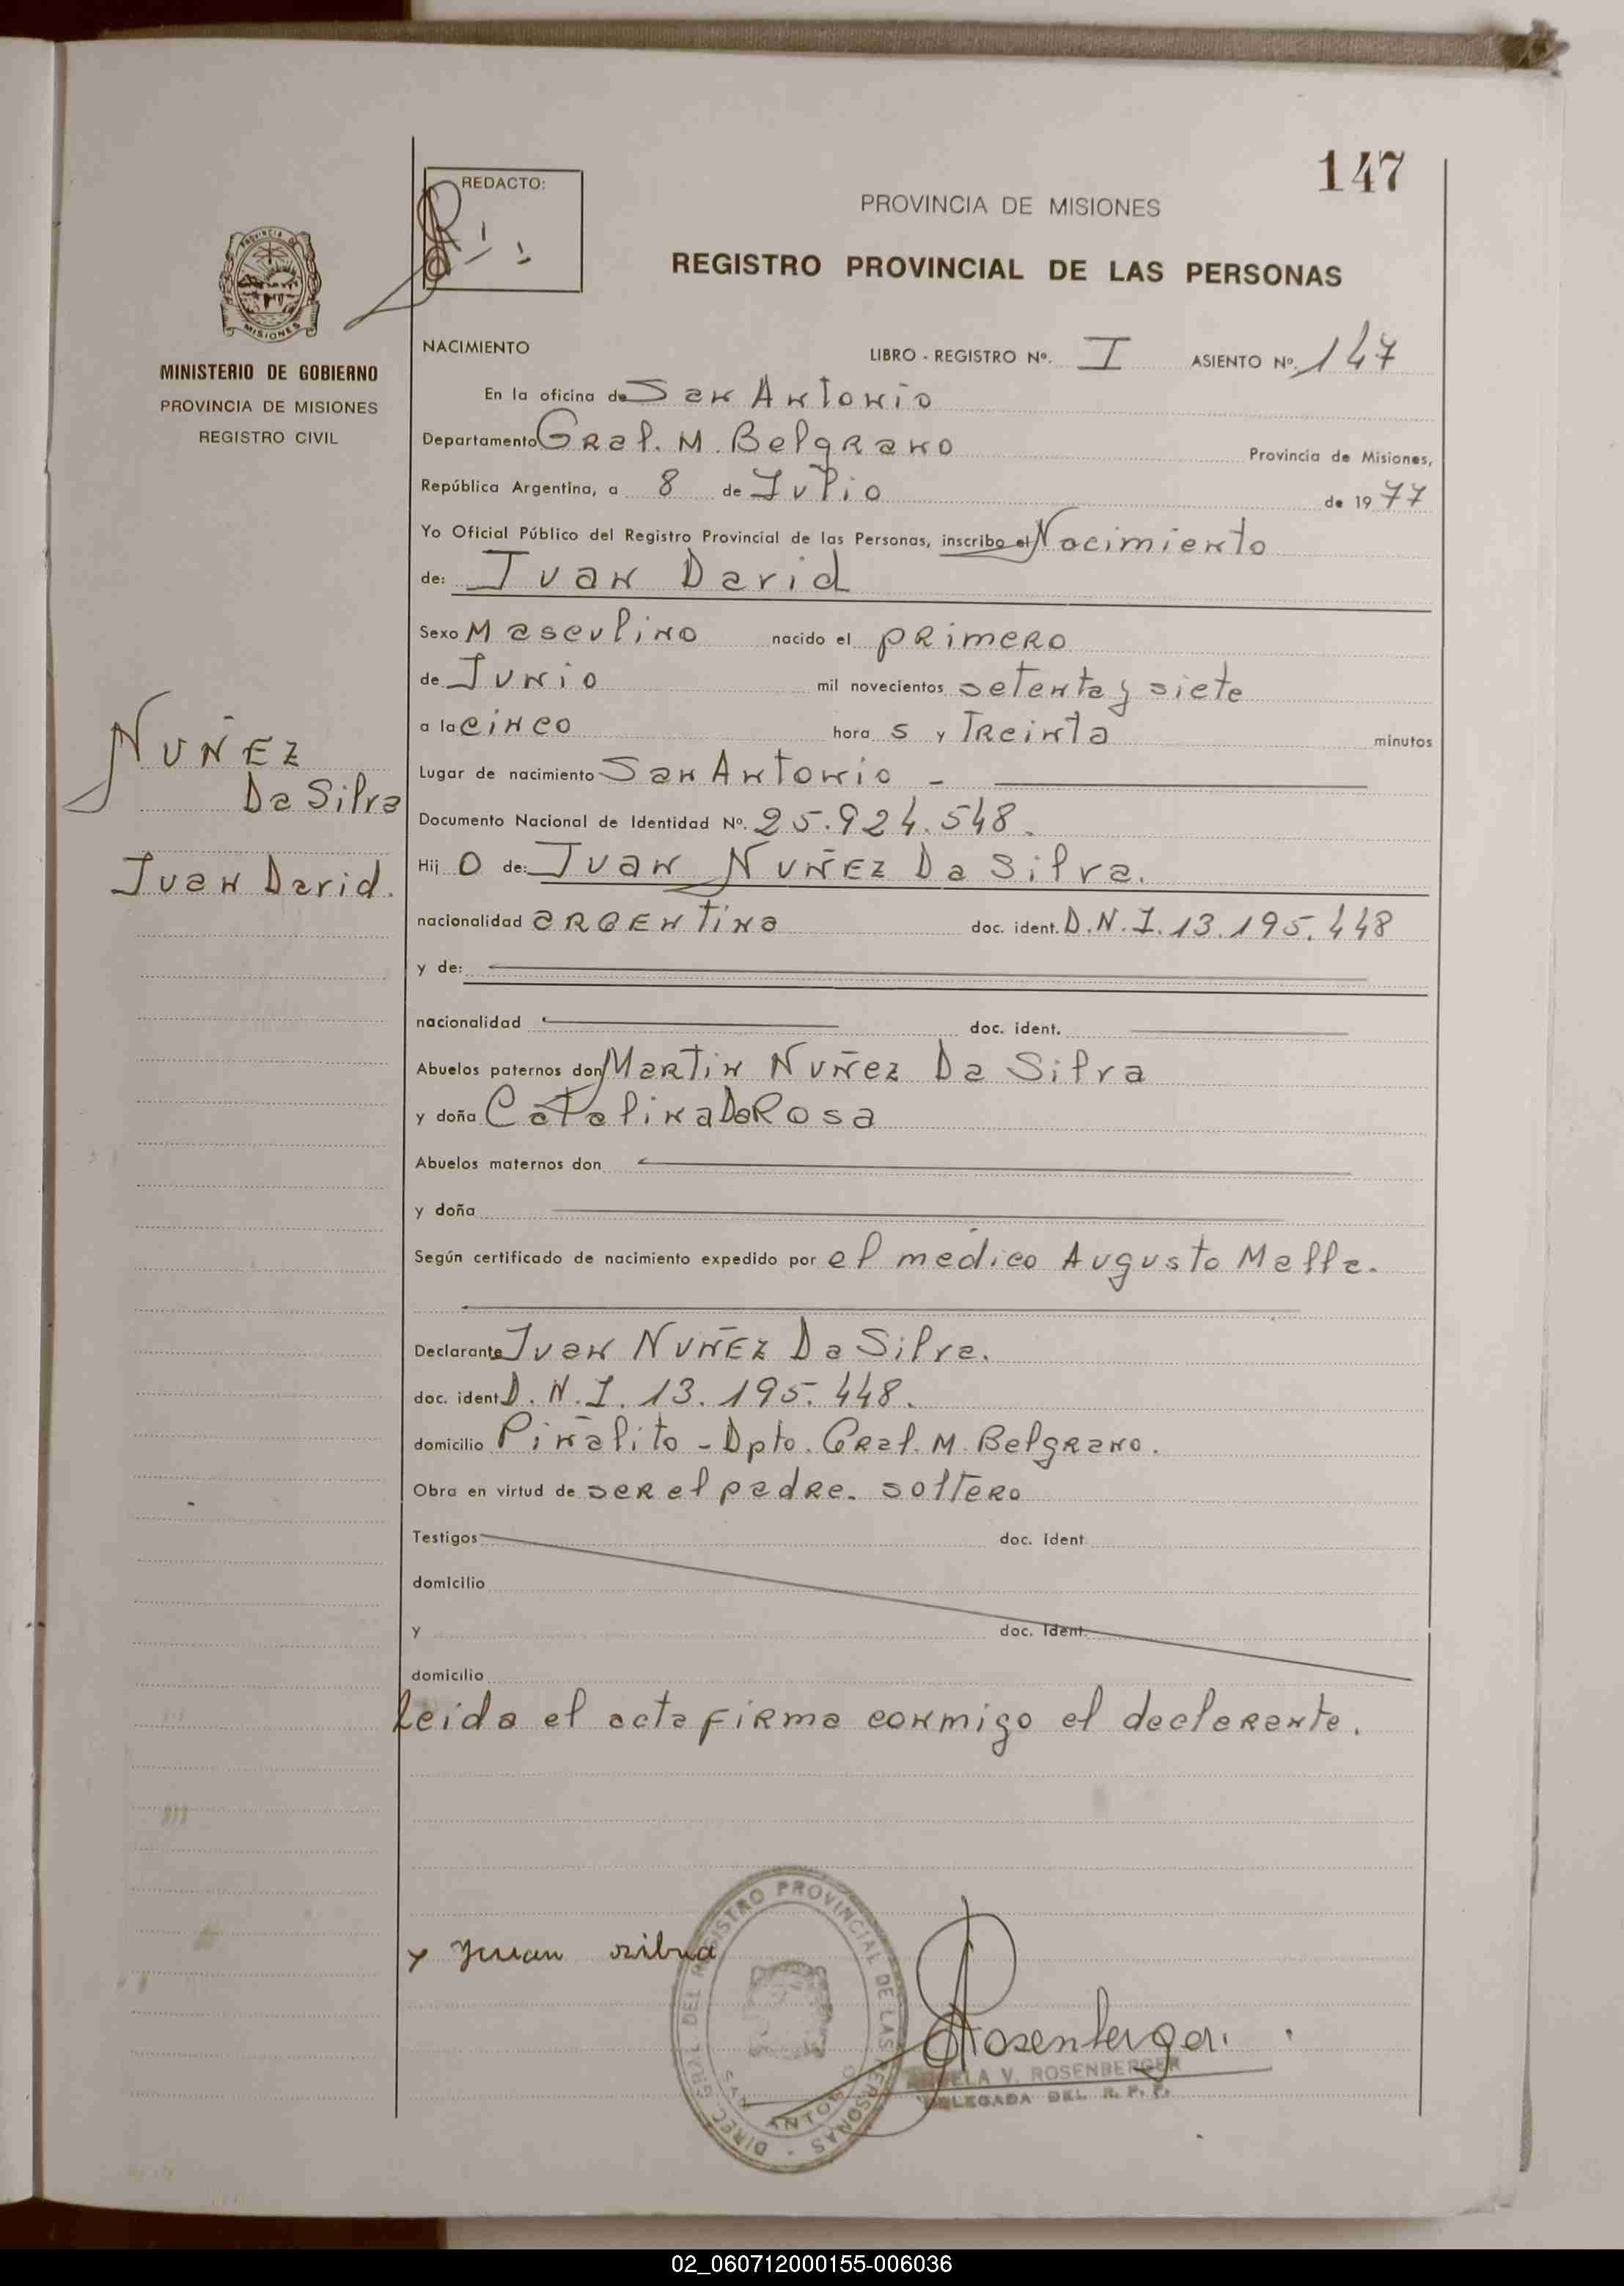 147
REDACTO:
PROVINCIA DE MISIONES
REGISTRO PROVINCIAL DE LAS PERSONAS
PROVINCIA DE
MISIONES
MINISTERIO DE GOBIERNO
PROVINCIA DE MISIONES
REGISTRO CIVIL
NACIMIENTO LIBRO - REGISTRO Nº. I ASIENTO Nº. 147
En la oficina de San Antonio
Departamento Gral. M. Belgrano Provincia de Misiones,
República Argentina, a 8 de Julio de 1977
Yo Oficial Público del Registro Provincial de las Personas, inscribo el Nacimiento
de: Juan David
Sexo Masculino nacido el primero
de Junio mil novecientos setenta y siete
a la cinco hora s y Treinta minutos
Lugar de nacimiento San Antonio -
Documento Nacional de Identidad Nº. 25.924.548.
Hij o de: Juan Nuñez Da Silva.
nacionalidad argentina doc. ident. D.N.I. 13.195.448
y de:
nacionalidad doc. ident.
Abuelos paternos don Martin Nuñez Da Silva
y doña Catalina Da Rosa
Abuelos maternos don
y doña
Según certificado de nacimiento expedido por el medico Augusto Malla.
Declarante Juan Nuñez Da Silva.
doc. ident D.N.I. 13.195.448.
domicilio Piñalito - Dpto. Gral. M. Belgrano.
Obra en virtud de ser el padre. soltero
Testigos doc. ident
domicilio
y doc. ident.
domicilio
Leida el acta firma conmigo el declarante.
Nuñez
Da Silva
Juan David.
y Juan silva
DIREC. GRAL. DEL REGISTRO PROVINCIAL DE LAS PERSONAS -
SAN ANTONIO
Rosenberger.
V. ROSENBERGER
DELEGADA DEL R. P. P.
02_060712000155-006036